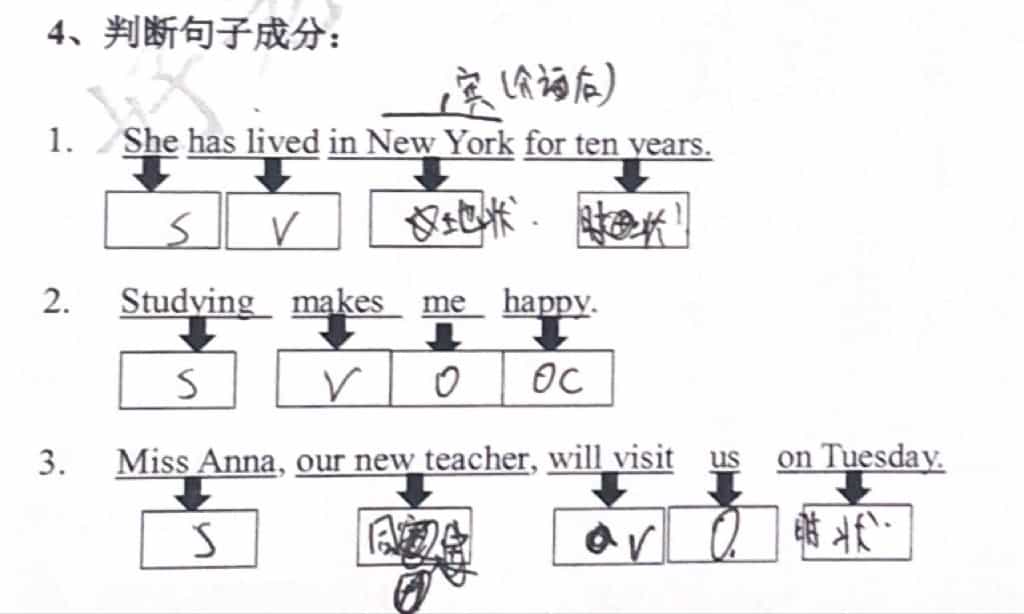 4、判断句子成分：
宾(介词后)
1. She has lived in New York for ten years.
S V 地状. 时状
2. Studying makes me happy.
S V O OC
3. Miss Anna, our new teacher, will visit us on Tuesday.
S 同 V O. 时状.